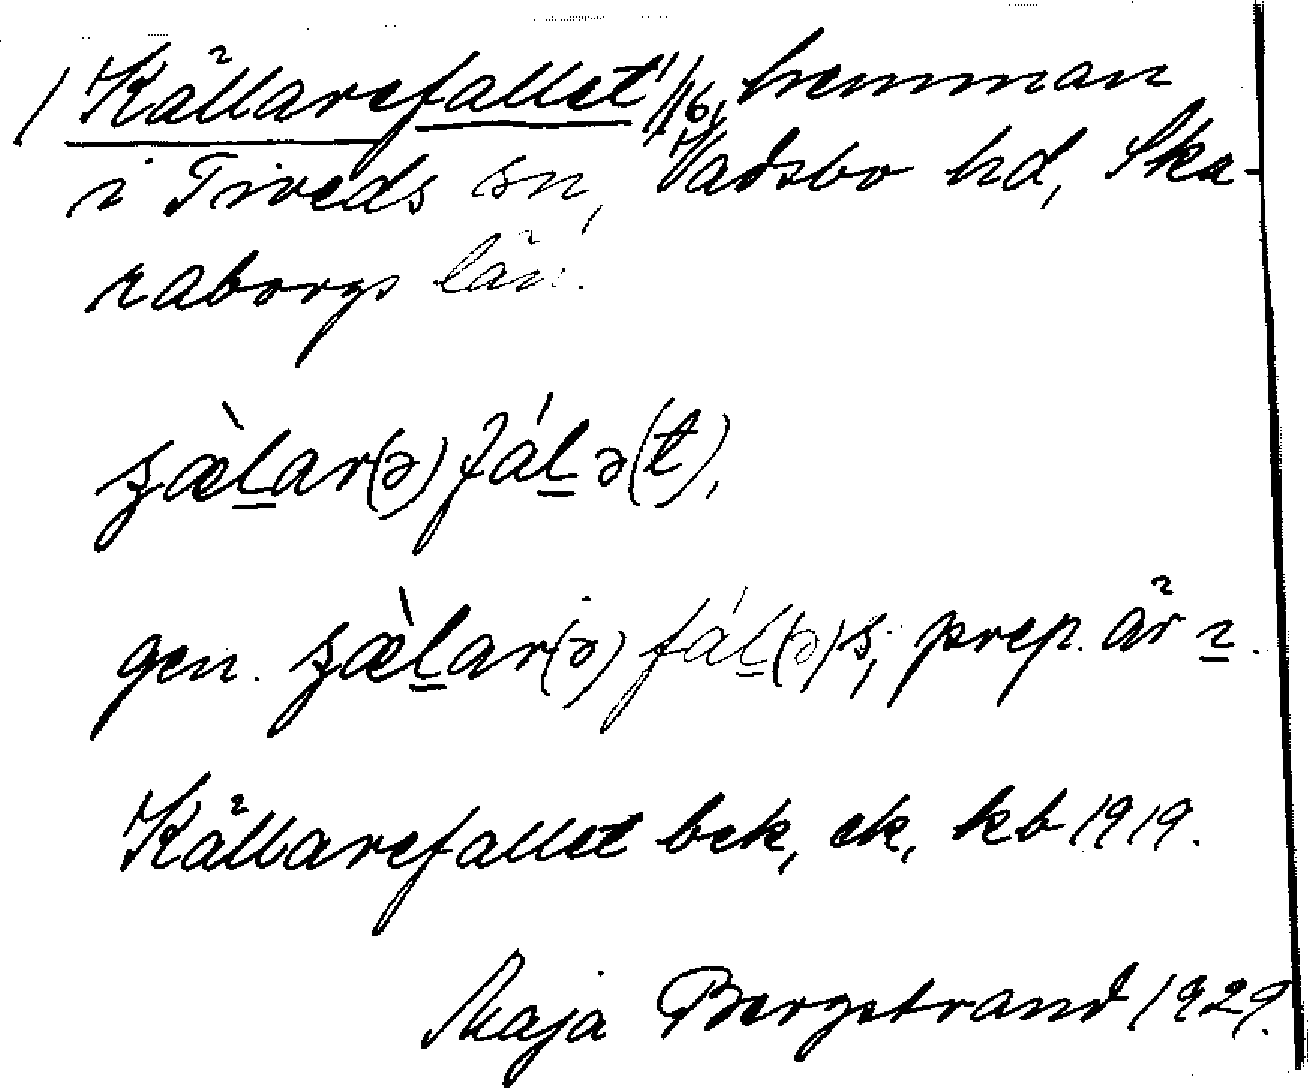 / Källarefallet 1/16, hemman
i Tiveds sn, Vadsbo hd, Ska-
raborgs län.
ʂæ̀l̲ar(ə)fál̲ə(t),
gen. ʂæ̀l̲ar(ə)fál̲(ə)s, prep. är ɪ̲.
Källarefallet bek, ek, kb 1919.
Maja Bergstrand 1929.